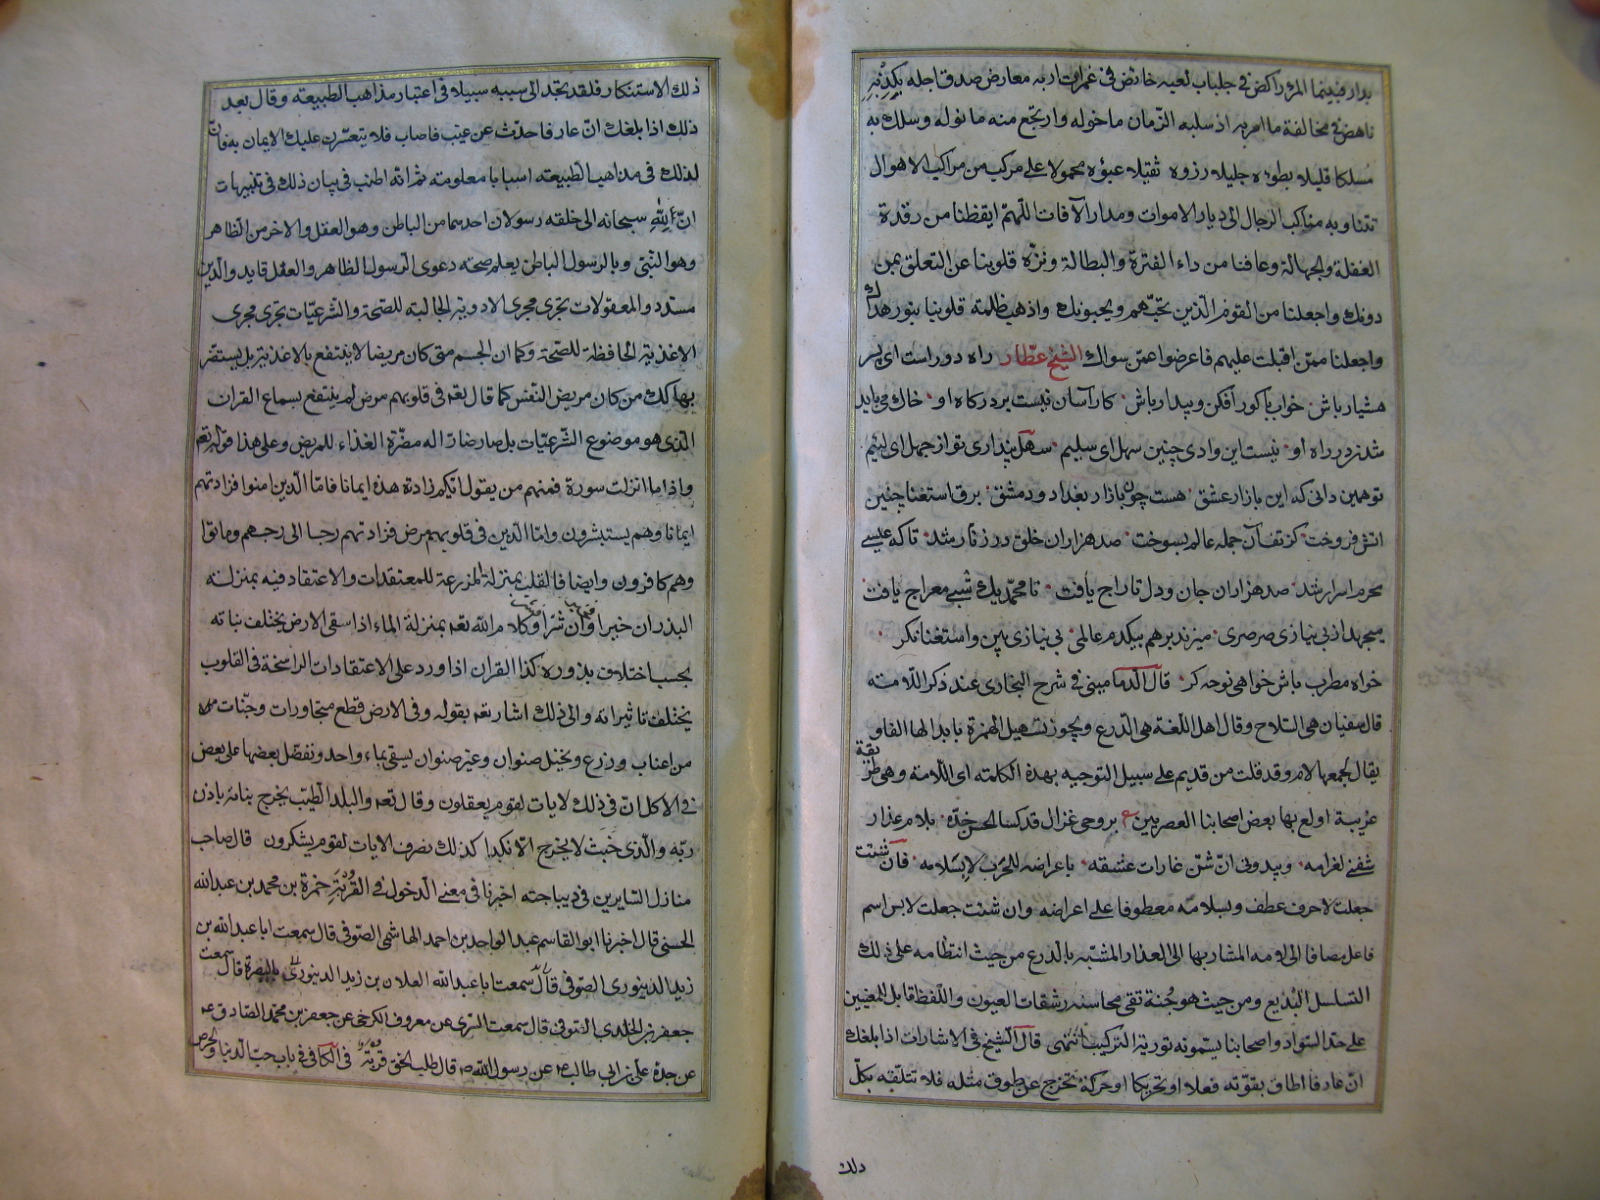 بدار فبينما المرء راكض في جلباب لعبه خائض في غمرات اربه معارض صدق اجله بكذبه
ناهض في مخالفة ما امر به اذ سلبه الزمان ما خوله وارتجع منه ما نوله وسلك به
مسلكا قليلا بطوءه جليلا رزوه ثقيلا عبؤه محمولا على مركب من مراكب الاهوال
تتناوبه مناكب الرجال الى ديار الاموات ومدار الآفات اللّهمّ ايقظنا من رقدة
الغفلة والجهالة وعافنا من داء الفترة والبطالة ونزّه قلوبنا عن التعلق بمن
دونك واجعلنا من القوم الّذين تحبّهم ويحبونك واذهب ظلمة قلوبنا بنور هداك
واجعلنا ممّن اقبلت عليهم فاعرضوا عمّن سواك الشيخ عطّار راه دور است اى پسر
هشيار باش خواب با كور افكن وبيدار باش كار آسان نيست بر دركاه او خاك مى بايد
شدن در راه او نيست اين وادى چنين سهل اى سليم سهل پندارى تو از جهل اى لئيم
تو همين دانى كه اين بازار عشق هست چون بازار بغداد ودمشق برق استغنا چنين
اتش فروخت كز تف آن جمله عالم بسوخت صد هزاران خلق در زنار شد تا كه عيسى
محرم اسرار شد صد هزاران جان ودل تاراج يافت تا محمّد يك شبى معراج يافت
ميجهد از بى نيازى صرصرى ميزند بر هم بيكدم عالمى بى نيازى بين واستغنا نكر
خواه مطرب باش خواهى نوحه كر قال الدمامينى في شرح البخارى عند ذكر اللامة
قال سفيان هي السلاح وقال اهل اللّغة هي الدّرع ويجوز تسهيل الهمزة بابدالها الفا و
يقال لجمعها لام وقد قلت من قديم على سبيل التوجيه بهذه الكلمة اى اللامة وهي طريقة
غريبة اولع بها بعض اصحابنا العصريين ع بروحى غزال قد كسا الحسن خدّه بلام عذار
شفنى لغرامه ويبدو لى ان شنّ غارات عشقه باعراضه للحرب لابس لامه فان شئت
جعلت لا حرف عطف وبسلامه معطوفا على اعراضه وان شئت جعلت لابس اسم
فاعل مضافا الى لامه المشار بها الى العذار المشبّه بالدرع من حيث انتظامه على ذلك
التسلسل البديع ومن حيث هو جُنة تقى محاسنه رشقات العيون واللّفظ قابل للمعنيين
على حدّ السواء واصحابنا يسمونه تورية التركيب انتهى قال الشيخ في الاشارات اذا بلغك
انّ عارفا اطاق بقوّته فعلا او تحريكا او حركة تخرج عن طوق مثله فلا تتلقه بكلّ
ذلك
ذلك الاستنكار فلقد تجد الى سببه سبيلا في اعتبار مذاهب الطبيعة وقال بعد
ذلك اذا بلغك انّ عارفا حدّث عن غيب فاصاب فلا يتعسّرن عليك الايمان به فانّ
لذلك في مذاهب الطبيعة اسبابا معلومة ثم انه اطنب في بيان ذلك في تنبيهات
انّ لله سبحانه الى خلقه رسولان احدهما من الباطن وهو العقل والاخر من الظاهر
وهو النّبيّ وبالرسول الباطن يعلم صحة دعوى الرسول الظاهر والعقل قايد والدّين
مسدد والمعقولات تجرى مجرى الادوية الجالبة للصحة والشرعيّات تجرى مجرى
الاغذية الحافظة للصحّة وكما ان الجسم متى كان مريضا لا ينتفع بالاغذية بل يستضر
بها كذلك من كان مريض النّفس كما قال تعم في قلوبهم مرض لم ينتفع بسماع القران
الّذى هو موضوع الشّرعيّات بل صار ضارّا له مضرّة الغذاء للمريض وعلى هذا قوله تعم
واذا ما انزلت سورة فمنهم من يقول ايّكم زادته هذه ايمانا فامّا الّذين امنوا فزادتهم
ايمانا وهم يستبشرون وامّا الّذين في قلوبهم مرض فزادتهم رجسا الى رجسهم وماتوا
وهم كافرون وايضا فالقلب بمنزلة المزرعة للمعتقدات والاعتقاد فيه بمنزلة
البذر ان خيرا وان شرا وكلام الله تعم بمنزلة الماء اذا سقى الارض يختلف نباته
بحسب اختلاف بذوره كذا القران اذا ورد على الاعتقادات الراسخة في القلوب
يختلف تاثيراته والى ذلك اشار تعم بقوله وفي الارض قطع متجاورات وجنّات
من اعناب وزرع ونخيل صنوان وغير صنوان يسقى بماء واحد ونفضّل بعضها على بعض
في الاكل انّ في ذلك لايات لقوم يعقلون وقال تعم والبلد الطيّب يخرج نباته باذن
ربّه والّذى خَبُثَ لا يخرج الّا نكِدا كذلك نصرف الايات لقوم يشكرون قال صاحب
منازل السّايرين في ديباجته اخبرنا في معنى الدخول في الغربة حمزة بن محمد بن عبدالله
الحسنى قال اخبرنا ابو القاسم عبد الواحد بن احمد الهاشمى الصّوفى قال سمعت ابا عبدالله بن
زيد الدينورى الصّوفى قال سمعت ابا عبدالله العلان بن زيد الدينورى بالبصرة قال سمعت
جعفر بن الخلدى الصّوفى قال سمعت السّرى عن معروف الكرخى عن جعفر بن محمّد الصّادق ع
عن جدّه على بن ابى طالب ع عن رسول الله ص قال طلب الحقّ غربة في الكافى في باب حبّ الدّنيا والحرص